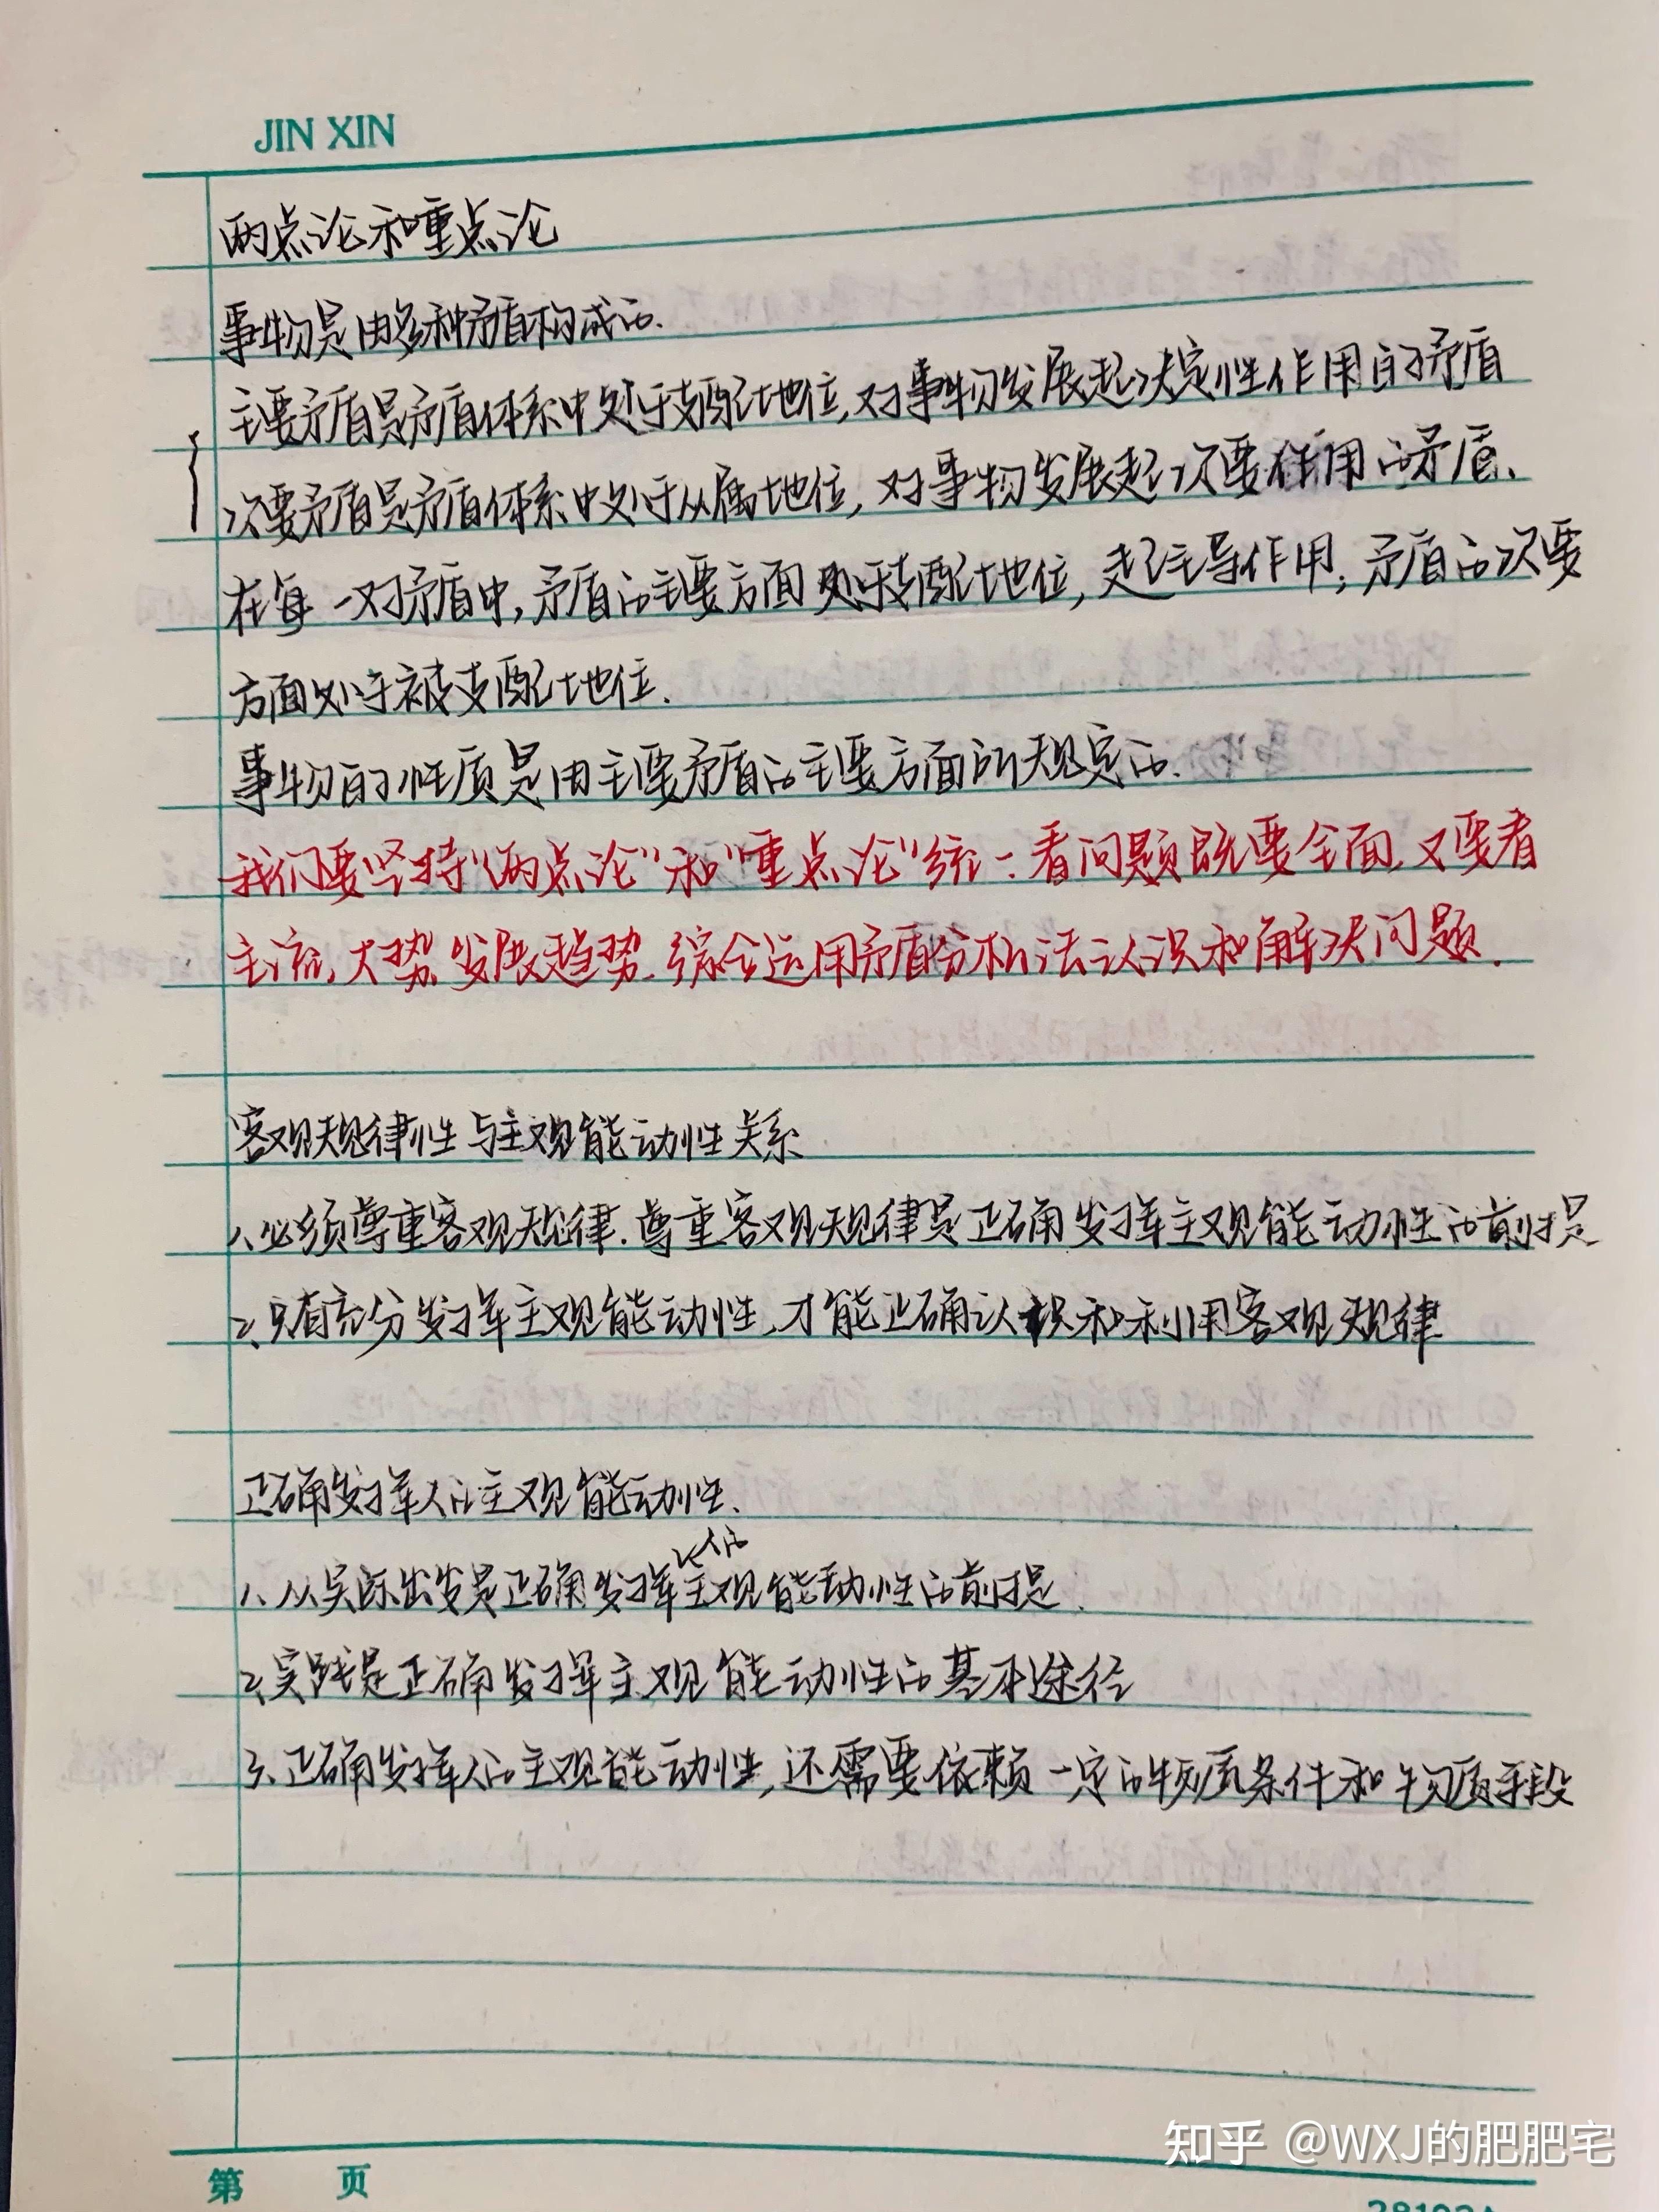 JIN XIN
两点论和重点论
事物是由多种矛盾构成的.
主要矛盾是矛盾体系中处于支配地位,对事物发展起决定性作用的矛盾
次要矛盾是矛盾体系中处于从属地位,对事物发展起次要作用的矛盾、
在每一对矛盾中,矛盾的主要方面处于支配地位,起主导作用;矛盾的次要
方面处于被支配地位.
事物的性质是由主要矛盾的主要方面所规定的.
我们要坚持“两点论”和“重点论”统一:看问题既要全面,又要看
主流,大势,发展趋势.综合运用矛盾分析法认识和解决问题.
客观规律性与主观能动性关系
1、必须尊重客观规律.尊重客观规律是正确发挥主观能动性的前提
2、只有充分发挥主观能动性,才能正确认识和利用客观规律
正确发挥人的主观能动性.
1、从实际出发是正确发挥人的主观能动性的前提.
2、实践是正确发挥主观能动性的基本途径
3、正确发挥人的主观能动性,还需要依赖一定的物质条件和物质手段
知乎 @WXJ的肥肥宅
第 页